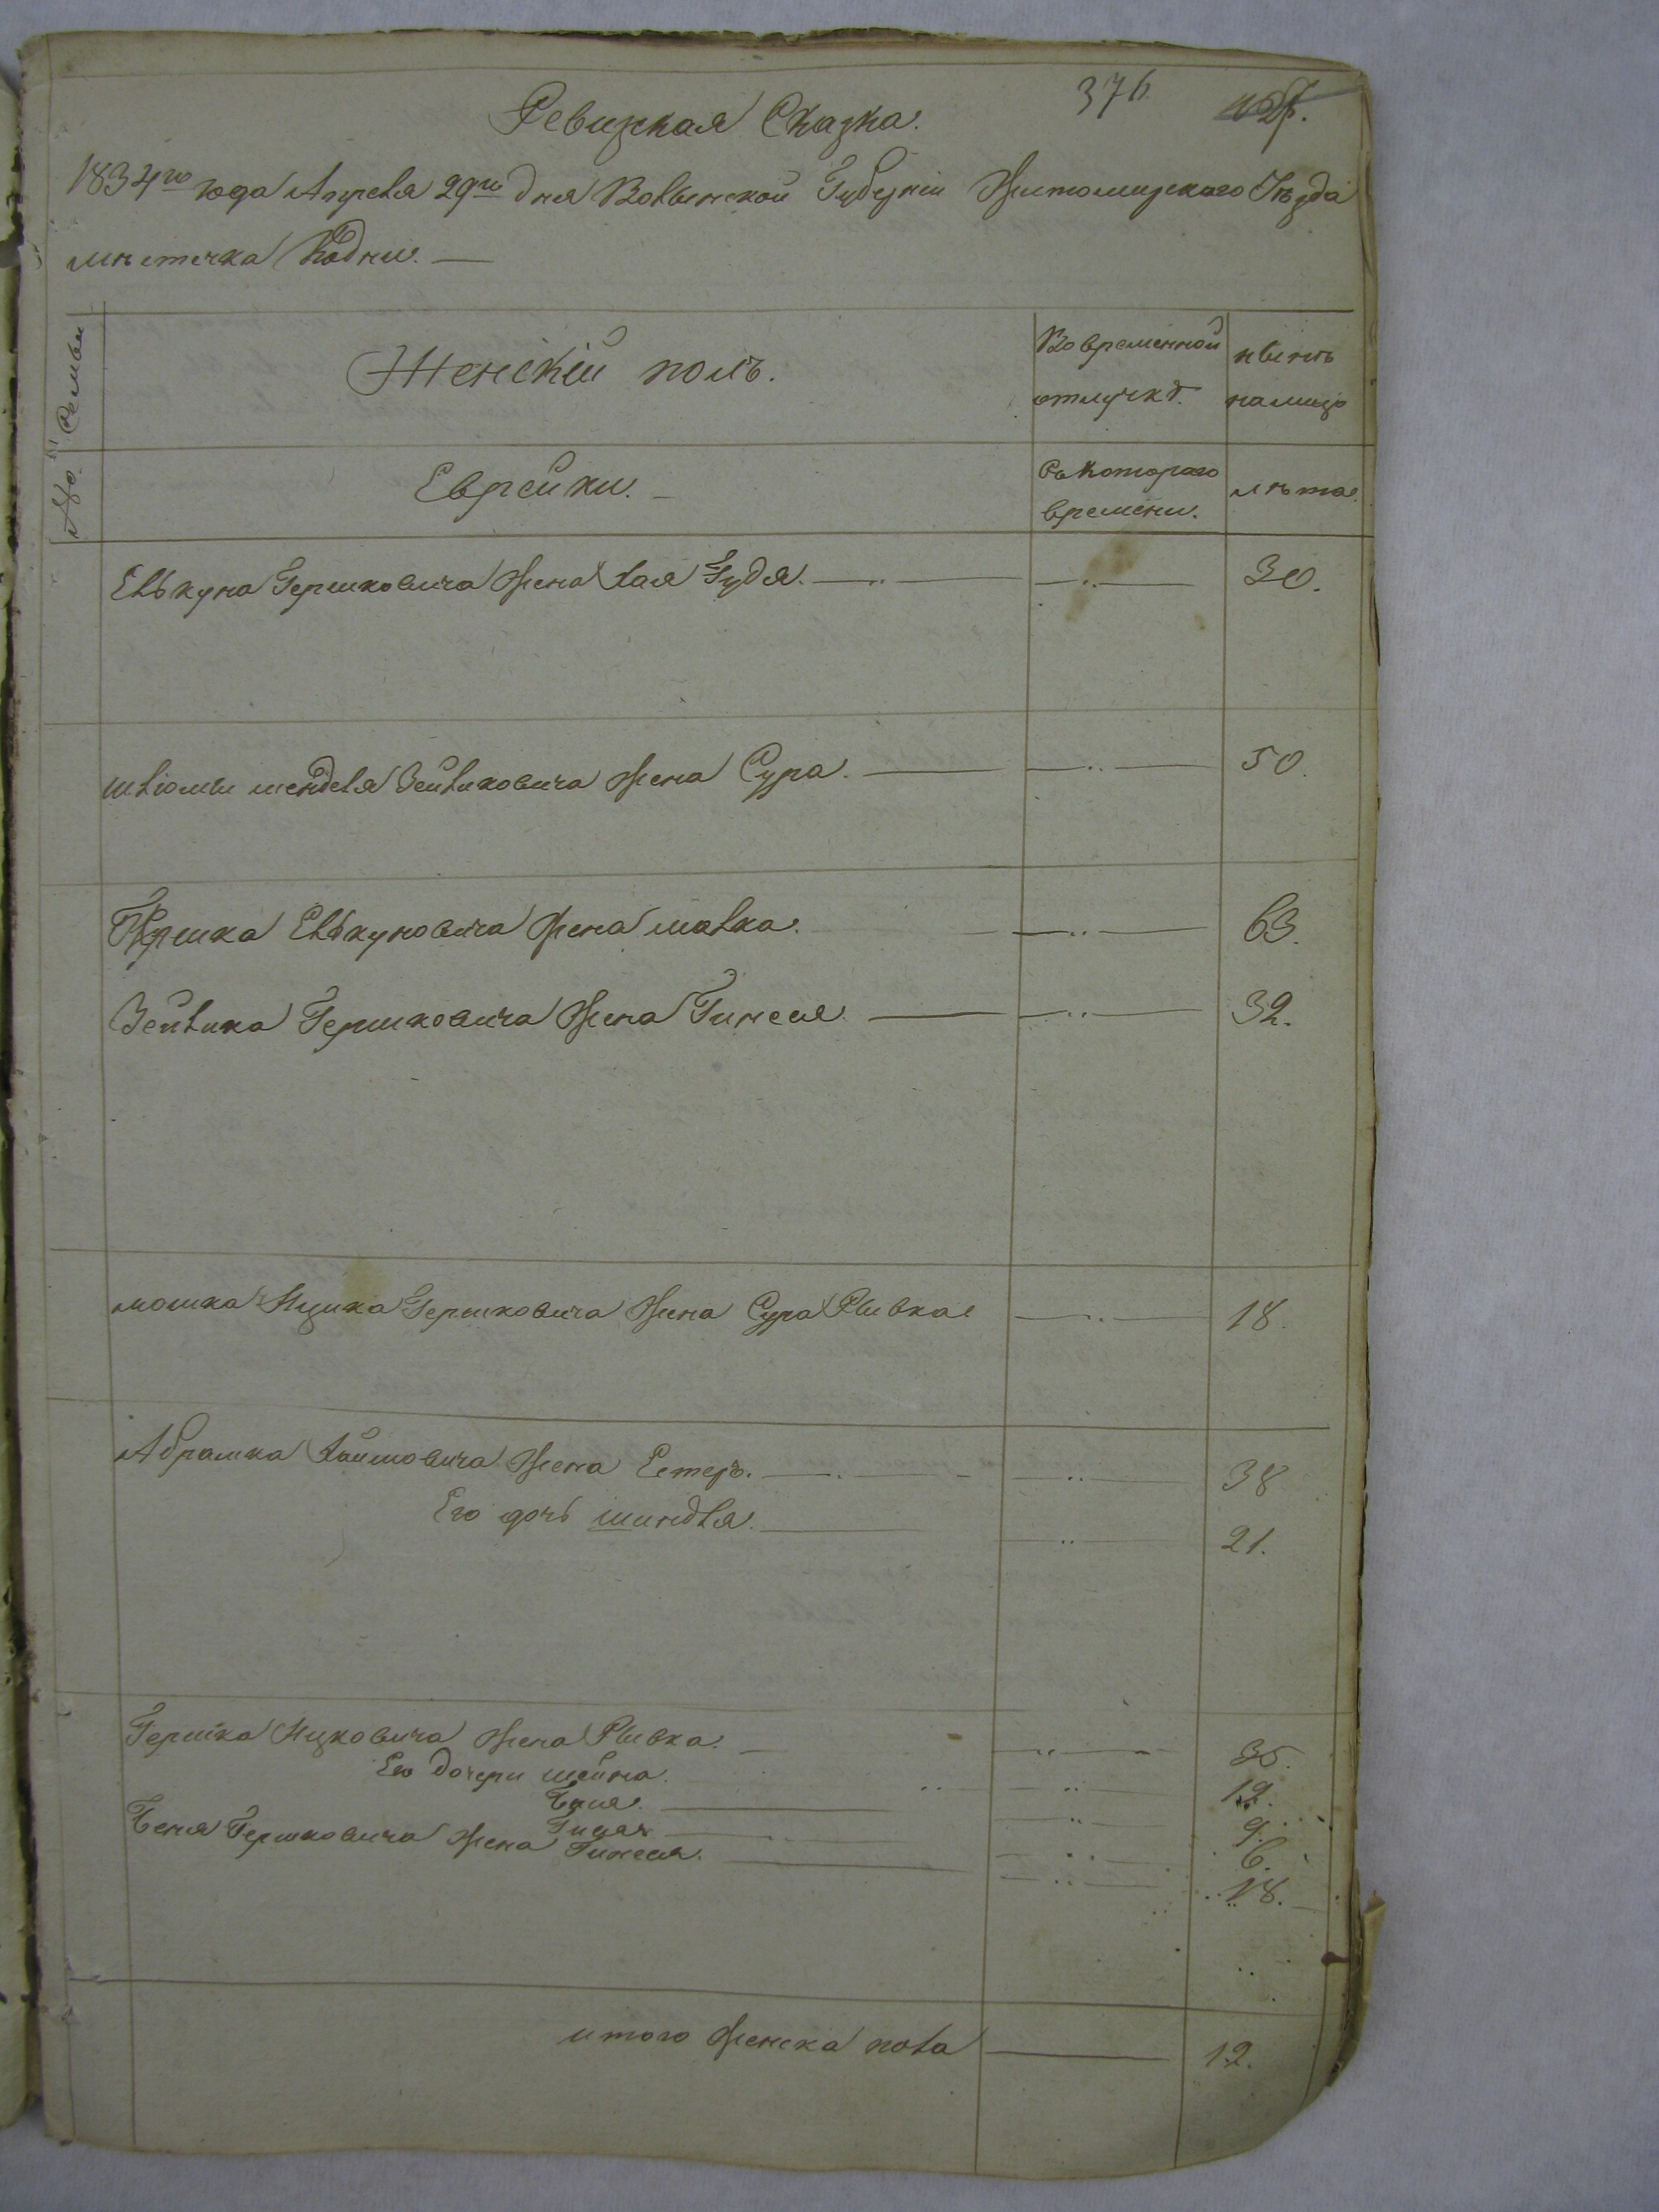 376
Ревизкая Сказка.
1834го года Апреля 29го дня Волынской Губерніи Житомирского Уѣзда
мѣстечка Кодни. —
№. Семьи
Женскій полъ.
Во временной отлучкѣ.
нынѣ на лицо
Еврейки. —
Съ которого времени.
лѣта.
Елькуна Гершковича жена Хая Гудя. — 30.
Шлiомы Менделя Зейликовича жена Сура. — 50.
Гершка Елькуновича жена Малка. — 63.
Зейлика Гершковича жена Гинеся. — 32.
Мошка Ицика Гершковича жена Сура Рывка 18.
Абрамка Хаимовича жена Естеръ. — 38
Его дочь шиндля. — 21.
Гершка Ицковича жена Рывка. — 35.
Его дочери шейна. 12.
Бася. — 9.
6.
Беня Гершковича жена Гинеся. — 18.
итого женска пола — 12.